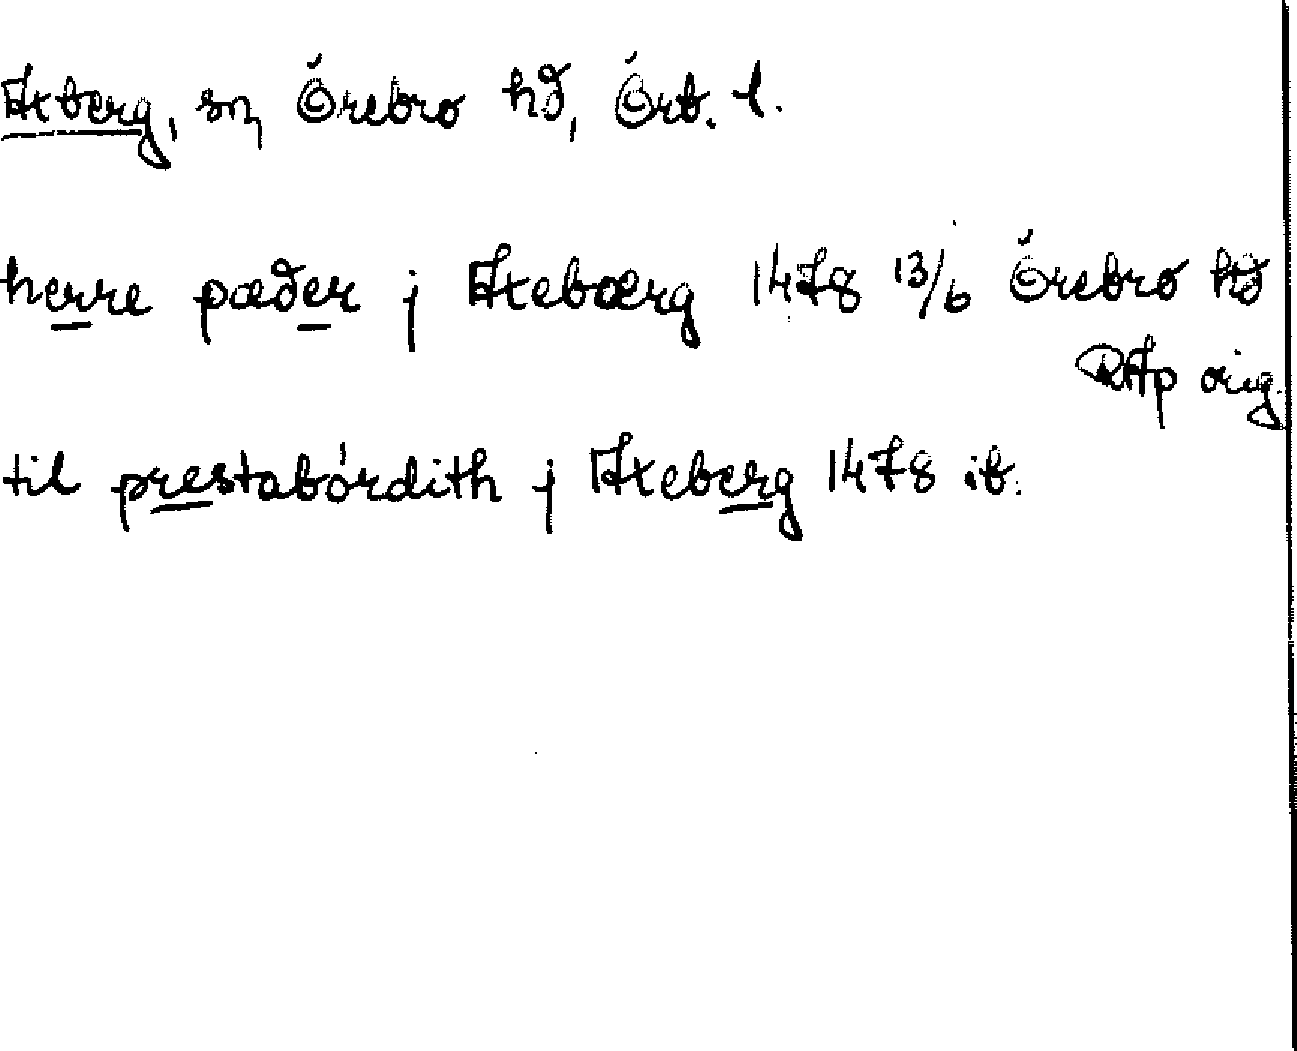 Axberg, sn, Örebro hd, Örb. l.
herre pæder j Axebærg 1478 13/6 Örebro hd
RAp orig.
til prestabördith j Axeberg 1478 ib.